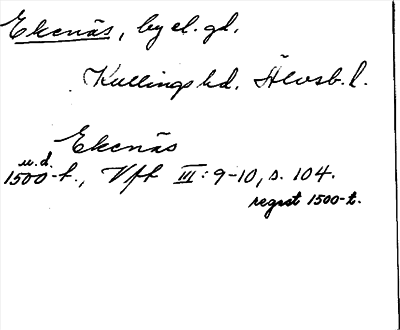 Ekenäs, by el. gd.
Kullings hd. Älvsb. l.
Ekenäs
u.d.
1500-t., Vft III: 9-10, s. 104.
regest 1500-t.